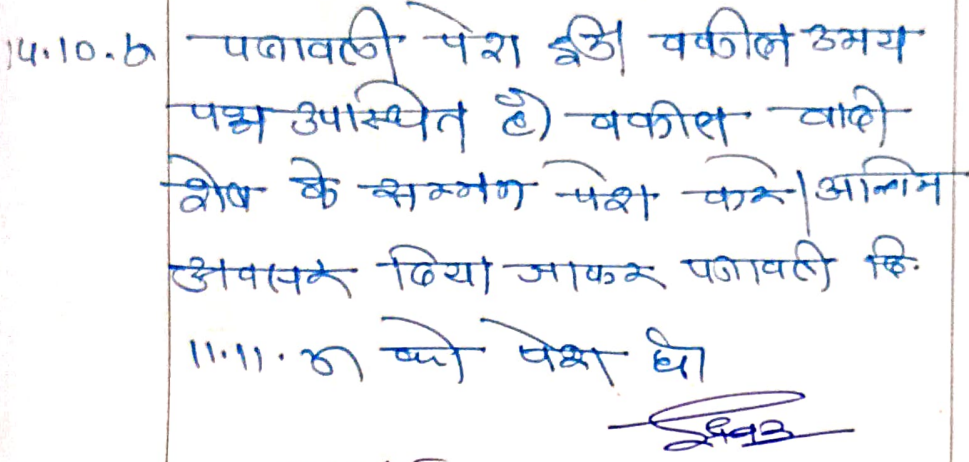 14.10.
पत्रावली पेश हुई। वकील उभय
पक्ष उपस्थित है। वकील वादी
शेष के सम्मन पेश करे। अन्तिम
अवसर दिया जाकर पत्रावली दि.
11.11. को पेश हो।